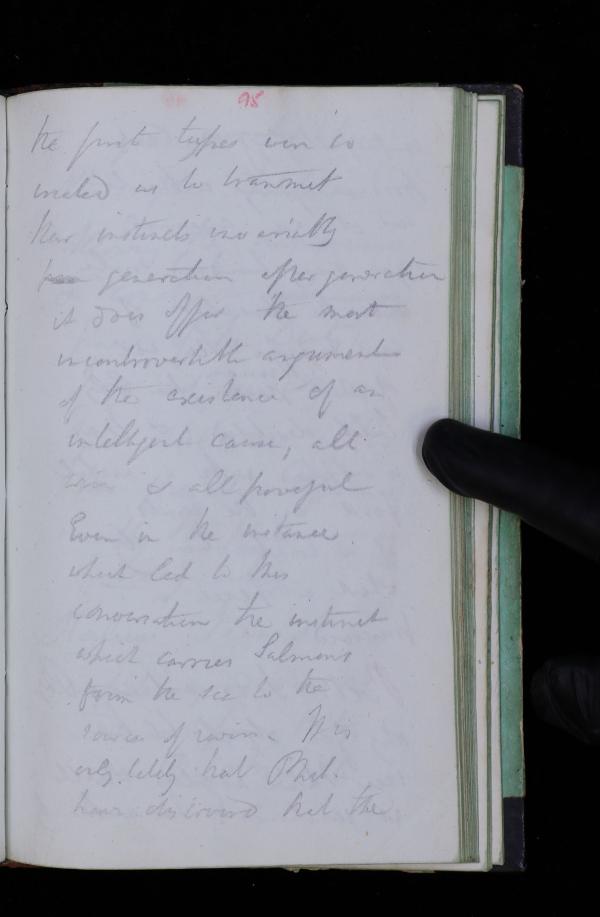 95
the first types were so
created as to transmit
their instincts invariably
generation after generation
it does offer the most
incontrovertible arguments
of the existence of an
intelligent cause, all
wise & all powerful
Even in the instance
which led to this
conversation the instinct
which carries Salmons
from the sea to the
source of rivers. It is
only lately that Phil.
have discovered that the